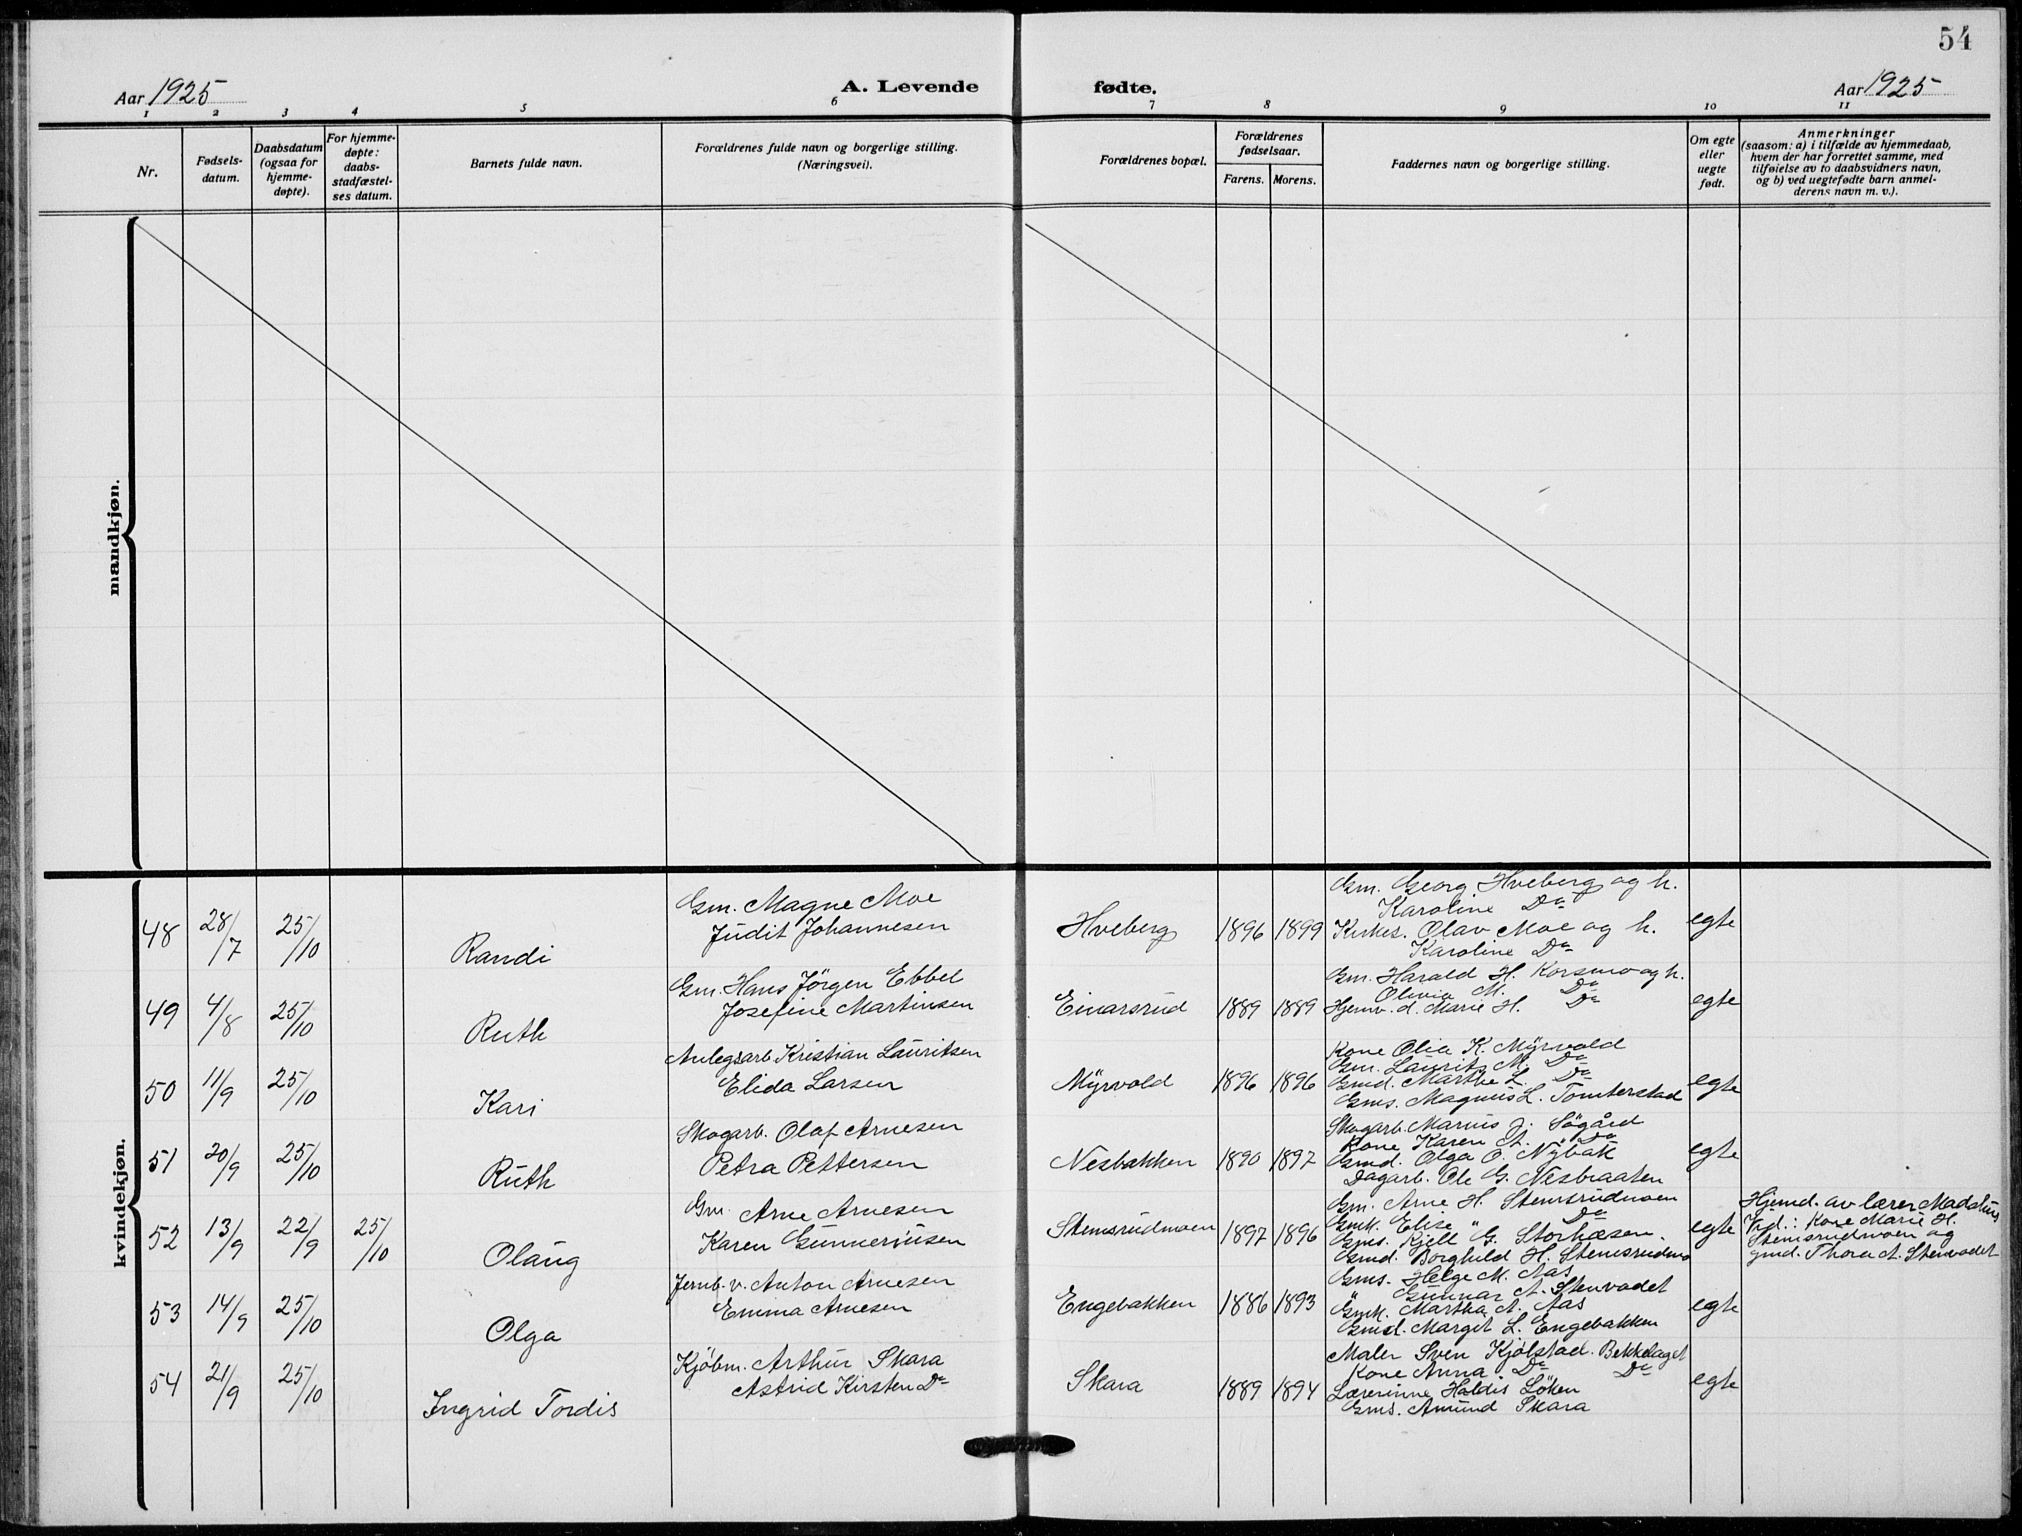 54
Aar 1925
A. Levende
fødte.
Aar 1925
1 2 3 4 5 6 7 8 9 10 11
Nr.
Fødsels-
datum.
Daabsdatum
(ogsaa for
hjemme-
døpte).
For hjemme-
døpte:
daabs-
stadfæstel-
ses datum.
Barnets fulde navn.
Forældrenes fulde navn og borgerlige stilling.
(Næringsvei).
Forældrenes bopæl.
Forældrenes
fødselsaar.
Farens. Morens.
Faddernes navn og borgerlige stilling.
Om egte
eller
uegte
født.
Anmerkninger
(saasom: a) i tilfælde av hjemmedaab,
hvem der har forrettet samme, med
tilføielse av to daabsvidners navn,
og b) ved uegtefødte barn anmel-
derens navn m. v.).
mandkjøn.
kvindekjøn.
48 28/7 25/10 Randi
Gm. Magne Moe
Judit Johannesen
Hveberg 1896 1899
Gm. Georg Hveberg og h.
Karoline Do
Kirkes. Olav Moe og h.
Karoline Do
egte
49 4/8 25/10 Ruth
Gm. Hans Jörgen Ebbel
Josefine Martinsen
Einarsrud 1889 1889
Gm. Harald H. Korsmo og h.
Olivia M. Do
Hjemv. d. Marie H. Do
egte
50 11/9 25/10 Kari
Anlegsarb. Kristian Lauritsen
Elida Larsen
Myrvold 1896 1896
Kone Olia K. Myrvold
Gm. Laurits M. Do
Gmd. Marthe L. Do
Gms. Magnus L. Tomterstad
egte
51 20/9 25/10 Ruth
Skogarb. Olaf Arnesen
Petra Pettersen
Nesbakken 1890 1897
Skogarb. Marius J. Sögård
Kone Karen A. Do
Gmd. Olga O. Nybak
Dagarb. Ole G. Nesbraaten
egte
52 13/9 22/9 25/10 Olaug
Gm. Arne Arnesen
Karen Gunneriusen
Stemsrudmoen 1897 1896
Gm. Arne H. Stemsrudmoen
Gmk. Elise " Do
Gms. Kjell G. Storhaesen.
Gmd. Borghild H. Stemsrudmo
egte
Hjemd. av lærer Madshus
Vid.: Kone Marie H.
Stemsrudmoen og
gmd. Thora A. Stenvadet
53 14/9 25/10 Olga
Jernb. v. Anton Arnesen
Emma Arnesen
Engebakken 1886 1893
Gms. Helge M. Aas
" Gunnar A. Stenvadet
Gmk. Martha A. Aas
Gmd. Margit L. Engebakken
egte
54 21/9 25/10 Ingrid Tordis
Kjøbm. Arthur Skara
Astrid Kirsten Do
Skara 1889 1894
Maler Sven Kjölstad. Bekkelaget
Kone Anna Do Do
Lærerinne Haldis Löken
Gms. Amund Skara
egte